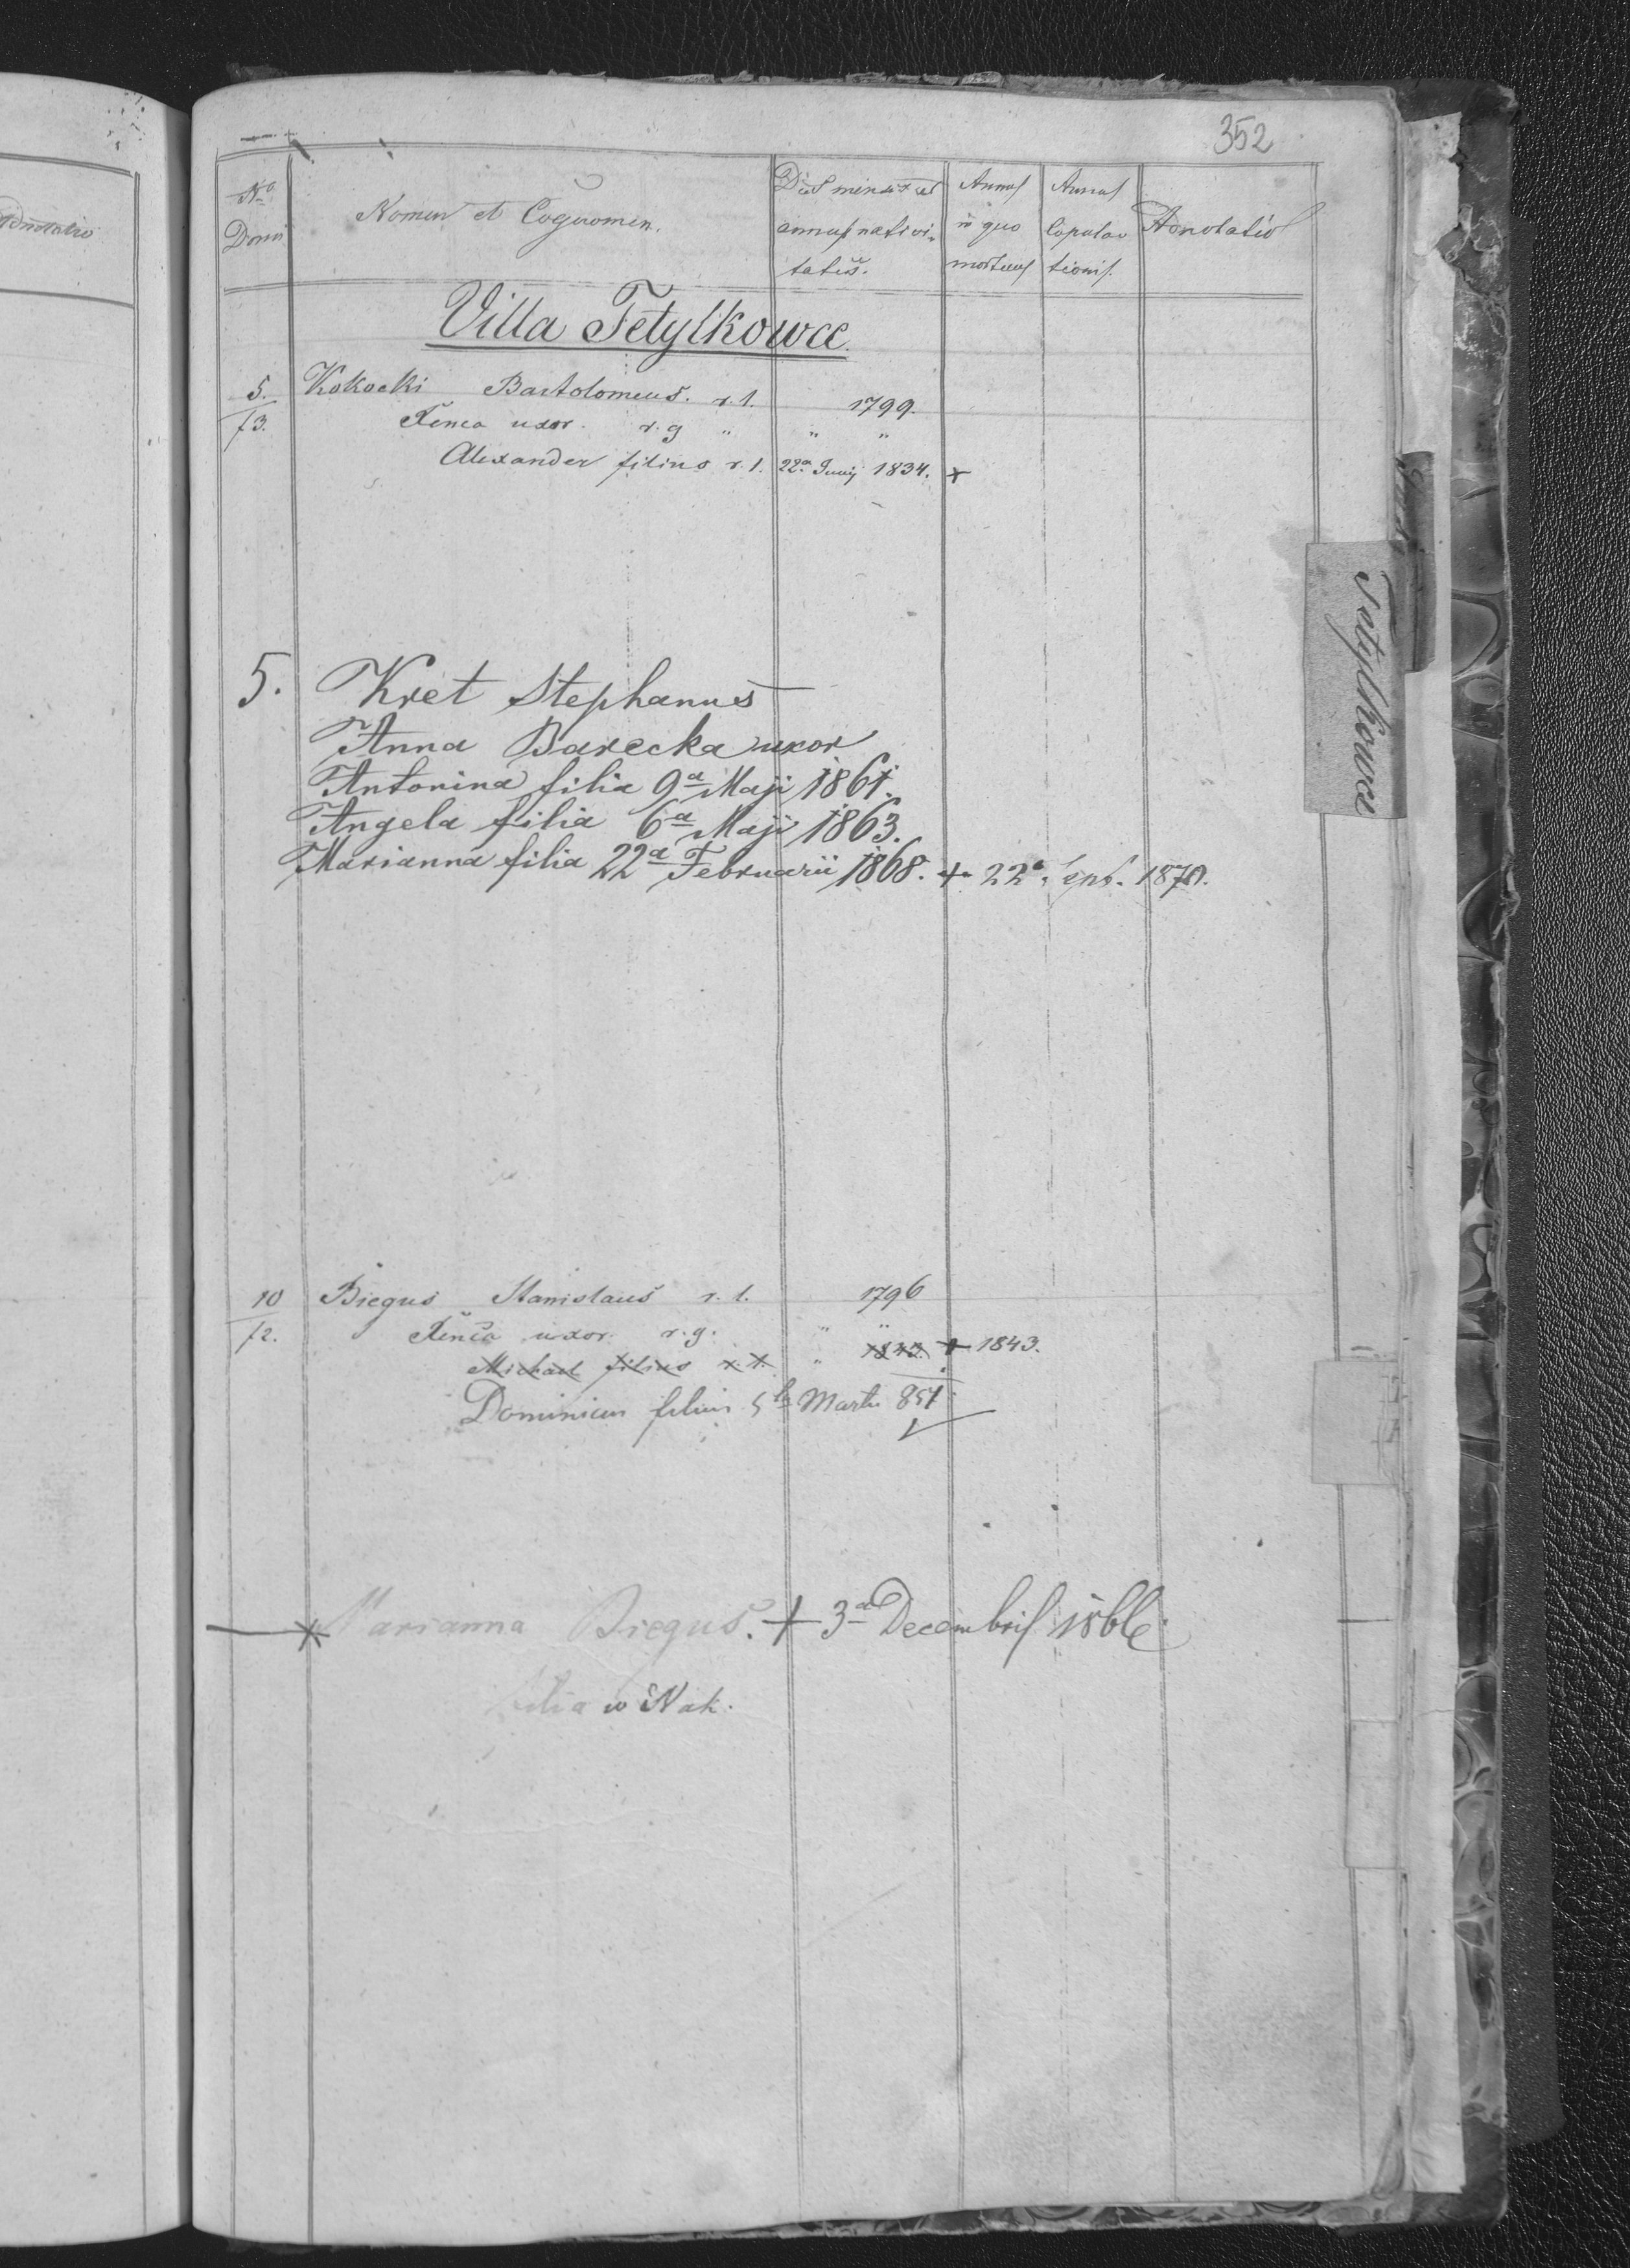 Adnotatio
352
No Domi
Nomen et Cognomen.
Dies mensis et annus nativitatis.
Annus in quo mortuus
Annus Copulationis.
Adnotatio
Villa Tetylkowce.
5. Kokocki Bartolomeus. r.l. 1799.
73. Xenia uxor. r.g „ „ „
Alexander filius r.l. 22a Junij 1834. +
5. Kret Stephanus
Anna Barecka uxor
Antonina filia 9a Maji 1861.
Angela filia 6a Maji 1863.
Marianna filia 22a Februarii 1868. + 22a 1870.
Tetylkowce
10 Biegus Stanislaus r.l. 1796
72. Xenia uxor. r.g. „ „
Michael filius r.l. „ 1843. + 1843.
Dominicus filius 5ta Martii 851
Marianna Biegus. + 3a Decembris 1866
filia w Nak.